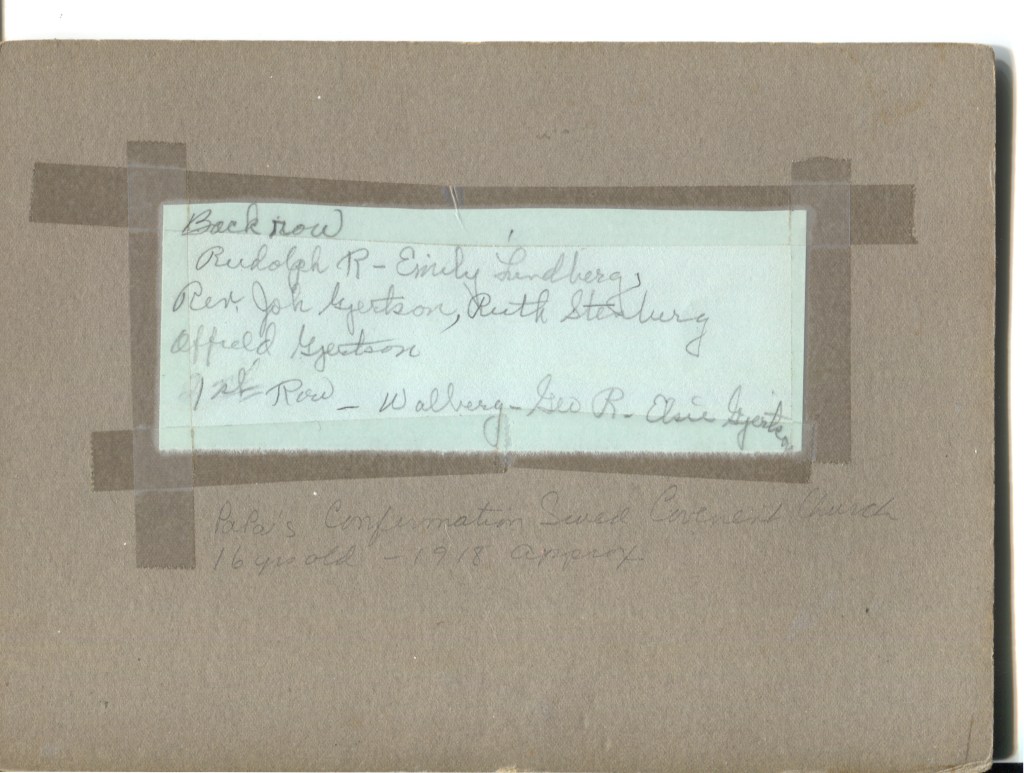 Back row
Rudolph R - Emily Lundberg,
Rev. Joh Gjertson, Ruth Stenburg
Offield Gjertson
1st Row - Walberg - Geo R - Elsie Gjertson
PaPa's Confirmation Swed Covenent Church
16 yrs old - 1918 approx